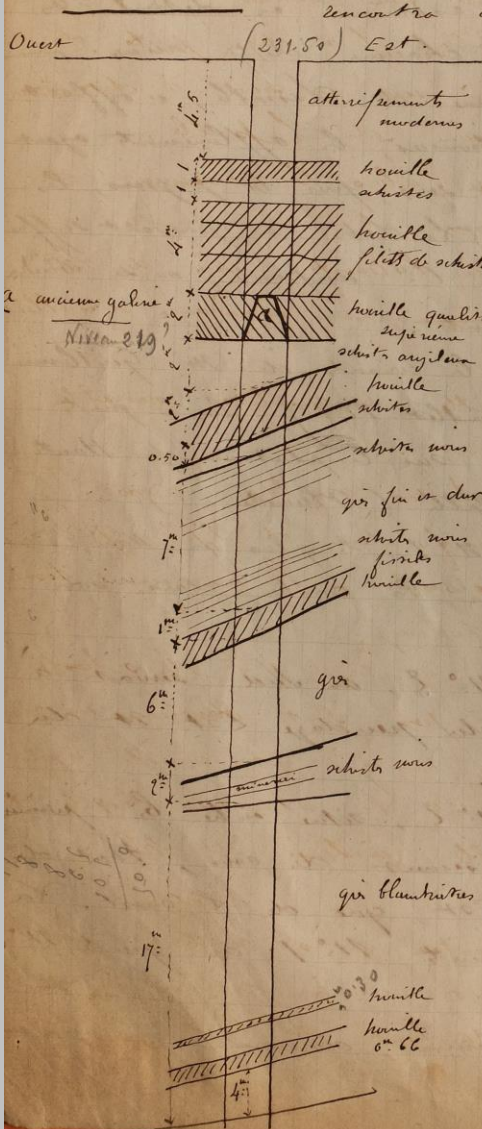 rencontra
Ouest (231.50) Est.
4.5
atterrissements
modernes
1 houille
1 schistes
4m houille
filets de schist
a ancienne galerie
Niveau 219?
a
2
houille qualit
supérieure
2 schistes argileux
2m houille
schistes
0.50
schistes noirs
grès fin et dur
7m
schistes noirs
fissiles
1m houille
6m grès
2m schistes noirs
minerai
grès blanchâtres
17m
0.30
houille
houille
0m 66
4m